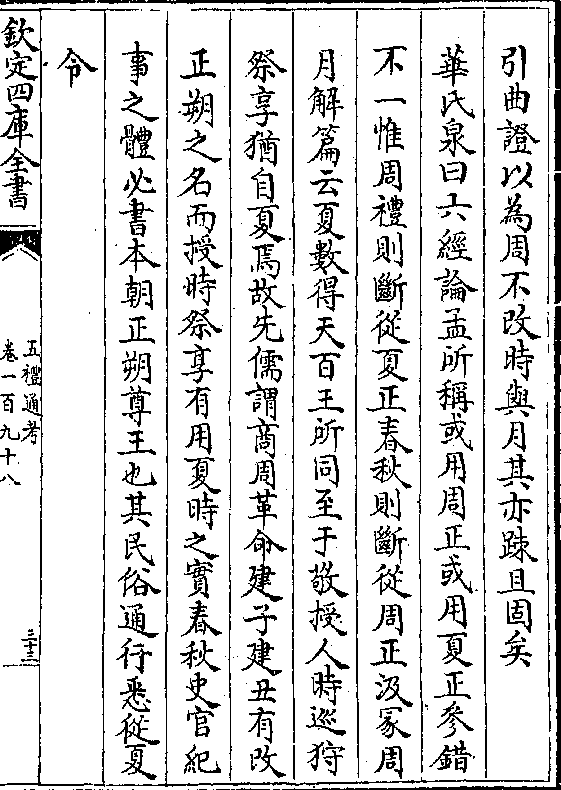 引曲證以為周不改時與月其亦踈且固矣
華氏泉曰六經論孟所稱或用周正或用夏正參錯
不一惟周禮則斷從夏正春秋則斷從周正汲冢周
月解篇云夏數得天百王所同至于敬授人時巡狩
祭享猶自夏焉故先儒謂商周革命建子建丑有改
正朔之名而授時祭享有用夏時之實春秋史官紀
事之體必書本朝正朔尊王也其民俗通行悉從夏
令
欽定四庫全書
五禮通考
卷一百九十八
三十三